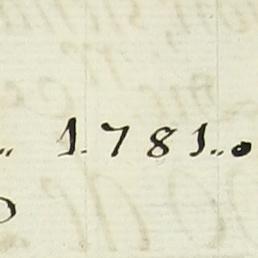 .. 1.781..0